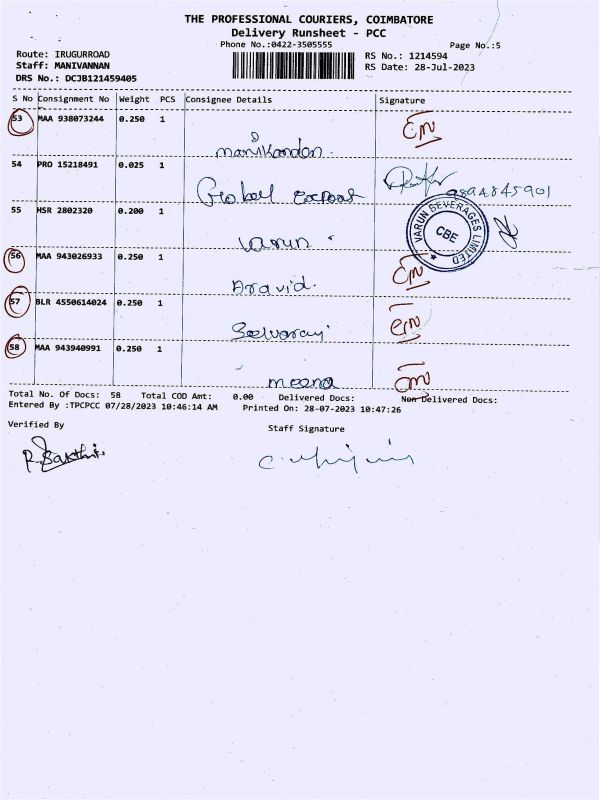 THE PROFESSIONAL COURIERS, COIMBATORE
Delivery Runsheet - PCC
Phone No.:0422-3505555 Page No.:5
Route: IRUGURROAD RS No.: 1214594
Staff: MANIVANNAN RS Date: 28-Jul-2023
DRS No.: DCJB121459405
S No Consignment No Weight PCS Consignee Details Signature
53 MAA 938073244 0.250 1
manikandan
54 PRO 15218491 0.025 1
Global Export 9894845901
55 HSR 2802320 0.200 1
Varun VARUN BEVERAGES LIMITED CBE
56 MAA 943026933 0.250 1
Aravid.
57 BLR 4550614024 0.250 1
Selvaraj
58 MAA 943940991 0.250 1
meena
Total No. Of Docs: 58 Total COD Amt: 0.00 Delivered Docs: Non Delivered Docs:
Entered By :TPCPCC 07/28/2023 10:46:14 AM Printed On: 28-07-2023 10:47:26
Verified By Staff Signature
R. Sakthi